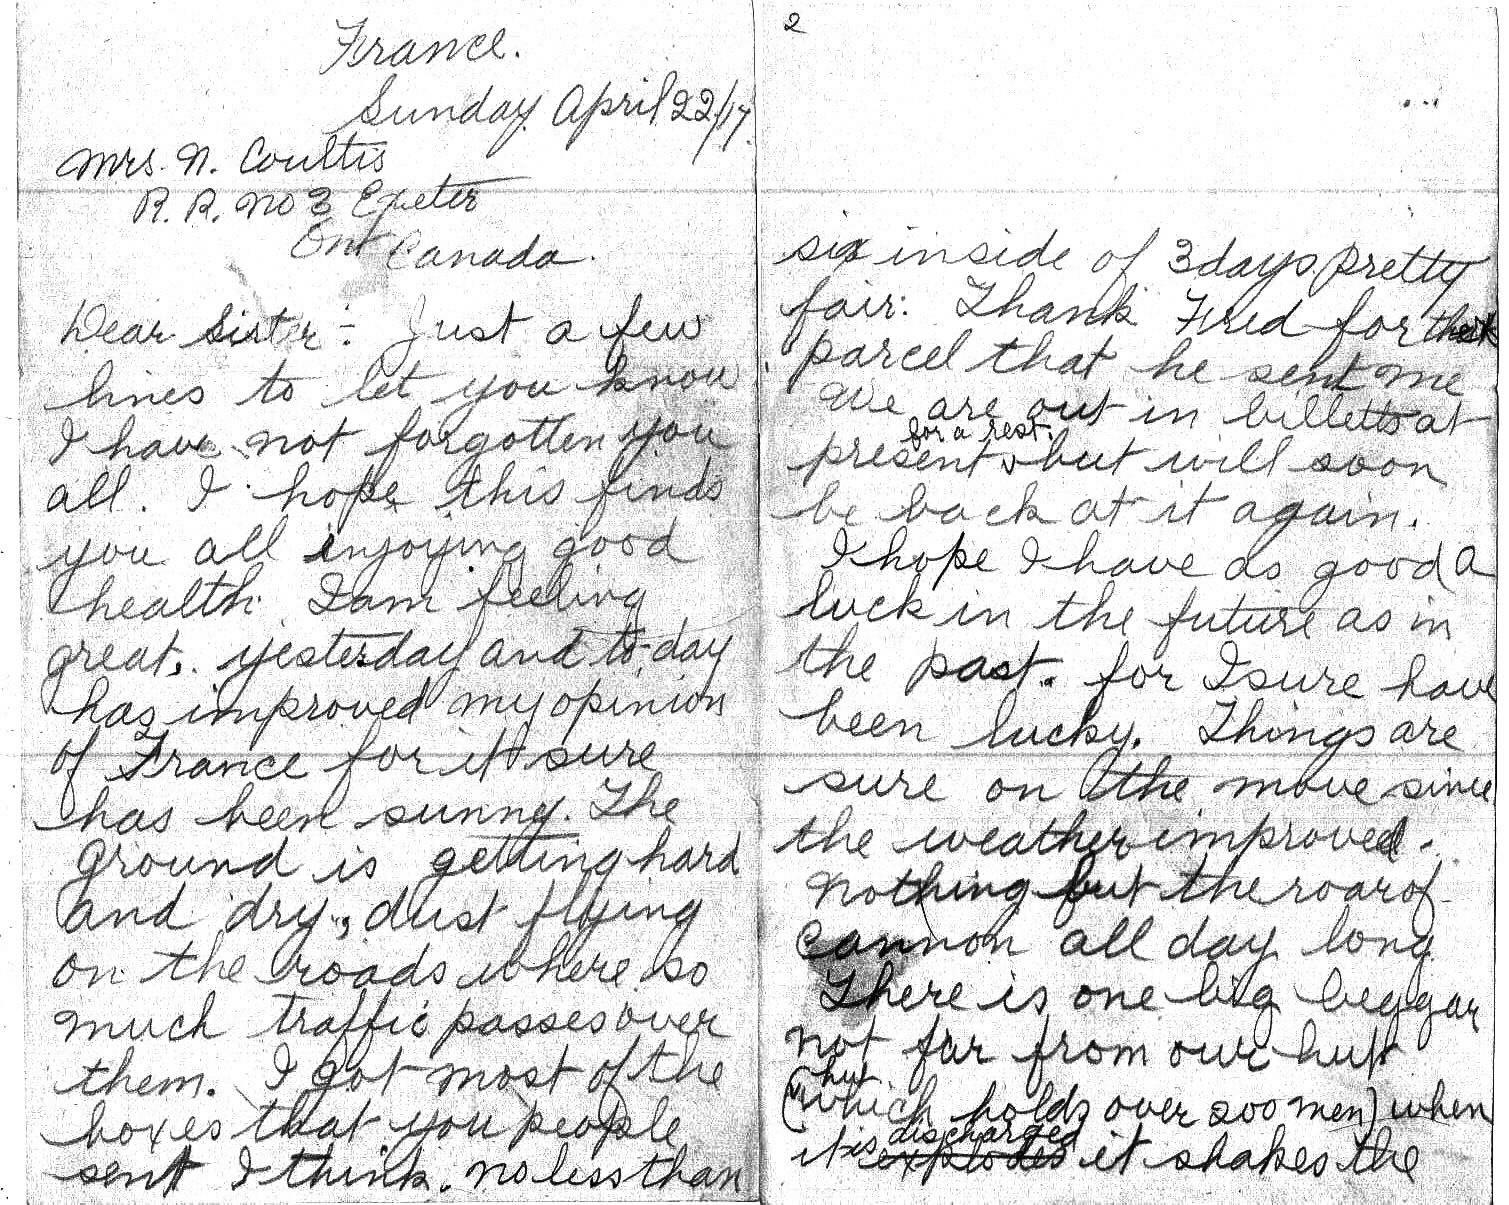 France.
Sunday. April 22/17.
Mrs. N. Coultis
R. R. No 3 Exeter
Ont Canada.
Dear Sister:- Just a few
lines to let you know
I have not forgotten you
all. I hope this finds
you all enjoying good
health. I am feeling
great, yesterday and to-day
has improved my opinion
of France for it sure
has been sunny. The
ground is getting hard
and dry, dust flying
on the roads where so
much traffic passes over
them. I got most of the
boxes that you people
sent I think. no less than
2
six inside of 3 days. pretty
fair: Thank Fred for the
parcel that he sent me
We are out in billetts at
for a rest.
present but will soon
be back at it again.
I hope I have as good a
luck in the future as in
the past. for I sure have
been lucky. Things are
sure on the move since
the weather improved.
Nothing but the roar of
cannon all day long.
There is one big beggar
not far from our hut
hut
(which holds over 200 men) when
discharged
it is explodes it shakes the